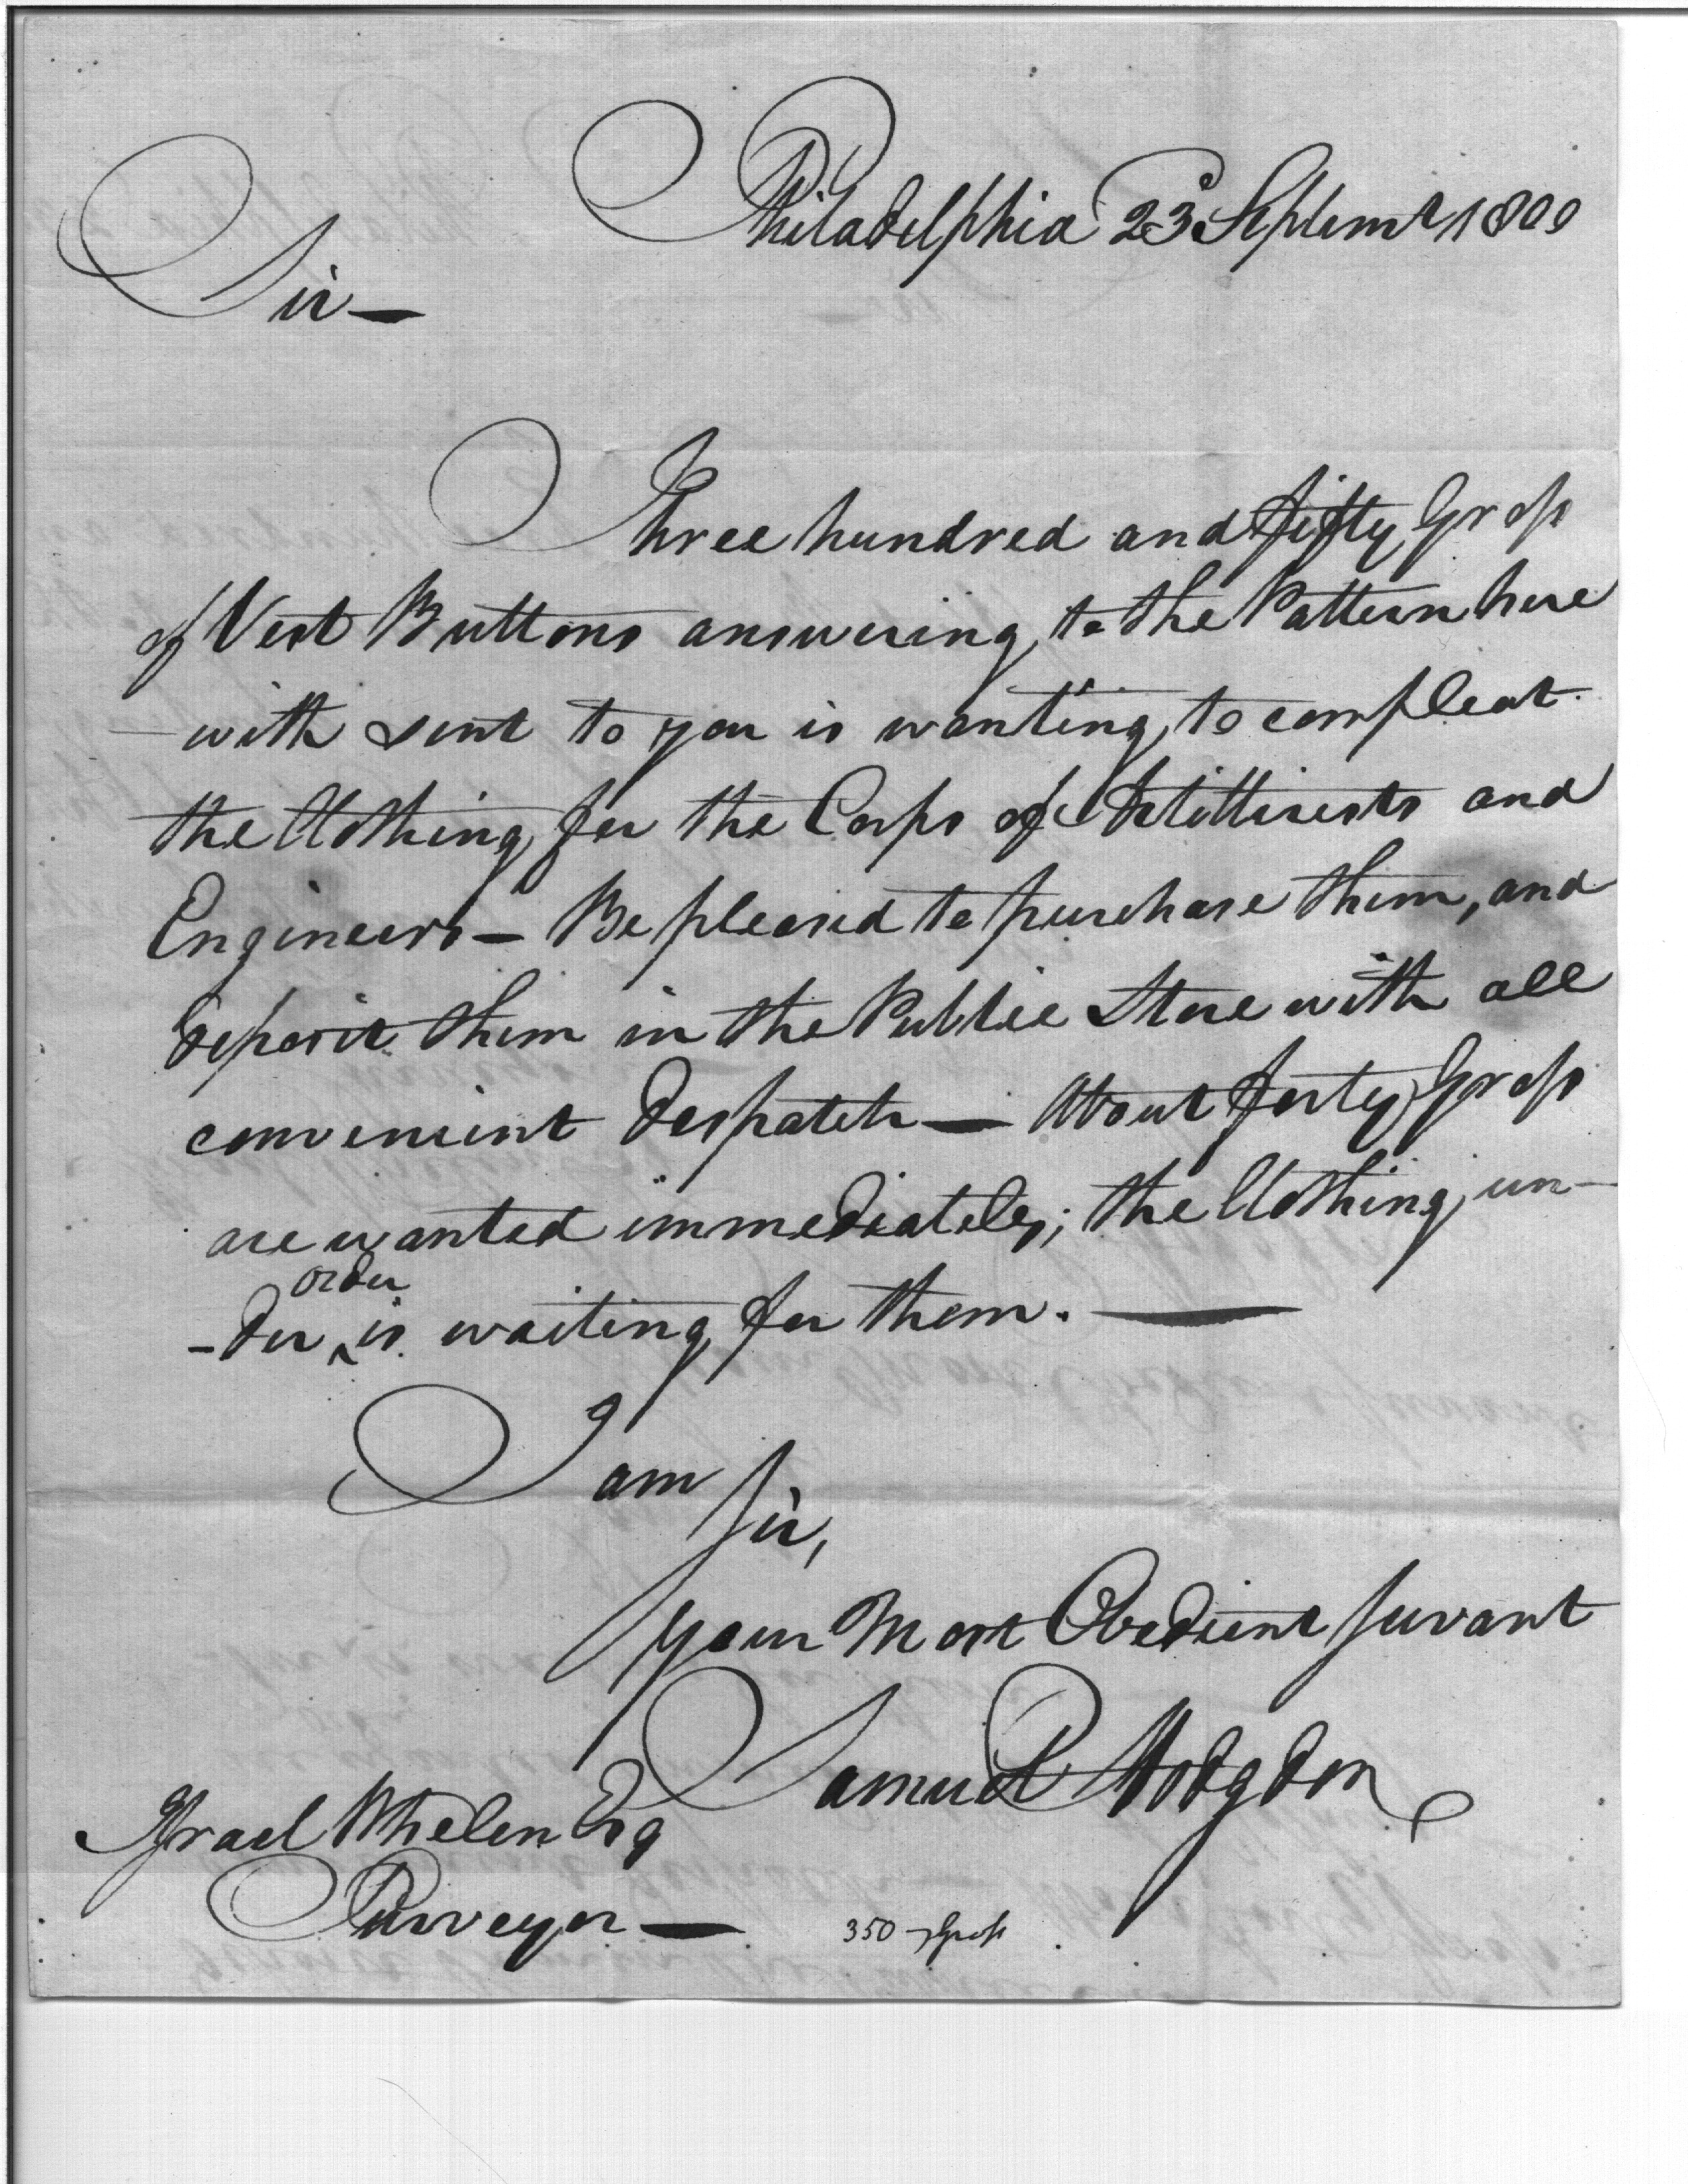 Philadelphia 23d Septemr 1800
Sir —
Three hundred and fifty Gross
of Vest Buttons answering to the Pattern here
with sent to you is wanting to compleat
the Clothing for the Corps of Artillirists and
Engineers — Be pleased to purchase them, and
deposit them in the Public Store with all
convenient despatch — About forty Gross
are wanted immediately; the Clothing un-
-der order is waiting for them. —
I am
Sir,
Your Most Obedient Servant
Samuel Hodgdon
Israel Whelen Esq
Purveyor —
350 Gross